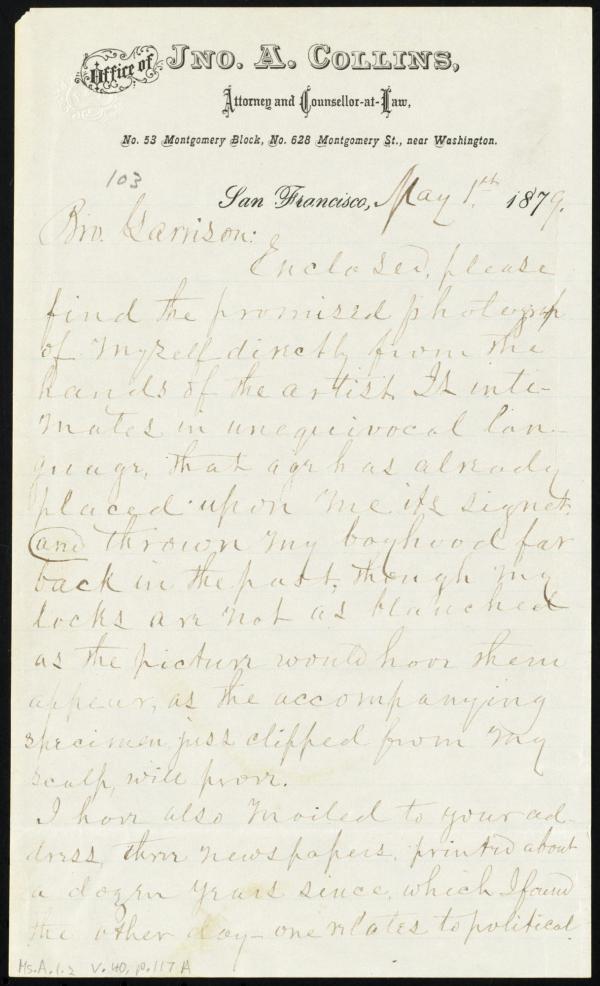 Office of JNO. A. COLLINS,
Attorney and Counsellor-at-Law,
No. 53 Montgomery Block, No. 628 Montgomery St., near Washington.
103
San Francisco, May 1.th 1879.
Bro. Garrison:
Enclosed, please
find the promised photograph
of myself directly from the
hands of the artist. It inti-
mates in unequivocal lan-
guage, that age has already
placed upon me its signet,
and thrown my boyhood far
back in the past, though my
locks are not as blanched
as the picture would have them
appear, as the accompanying
specimen just clipped from my
scalp, will prove.
I have also mailed to your ad-
dress, three newspapers, printed about
a dozen years since, which I found
the other day - one relates to political
Ms.A.1.2 v.40, p.117A